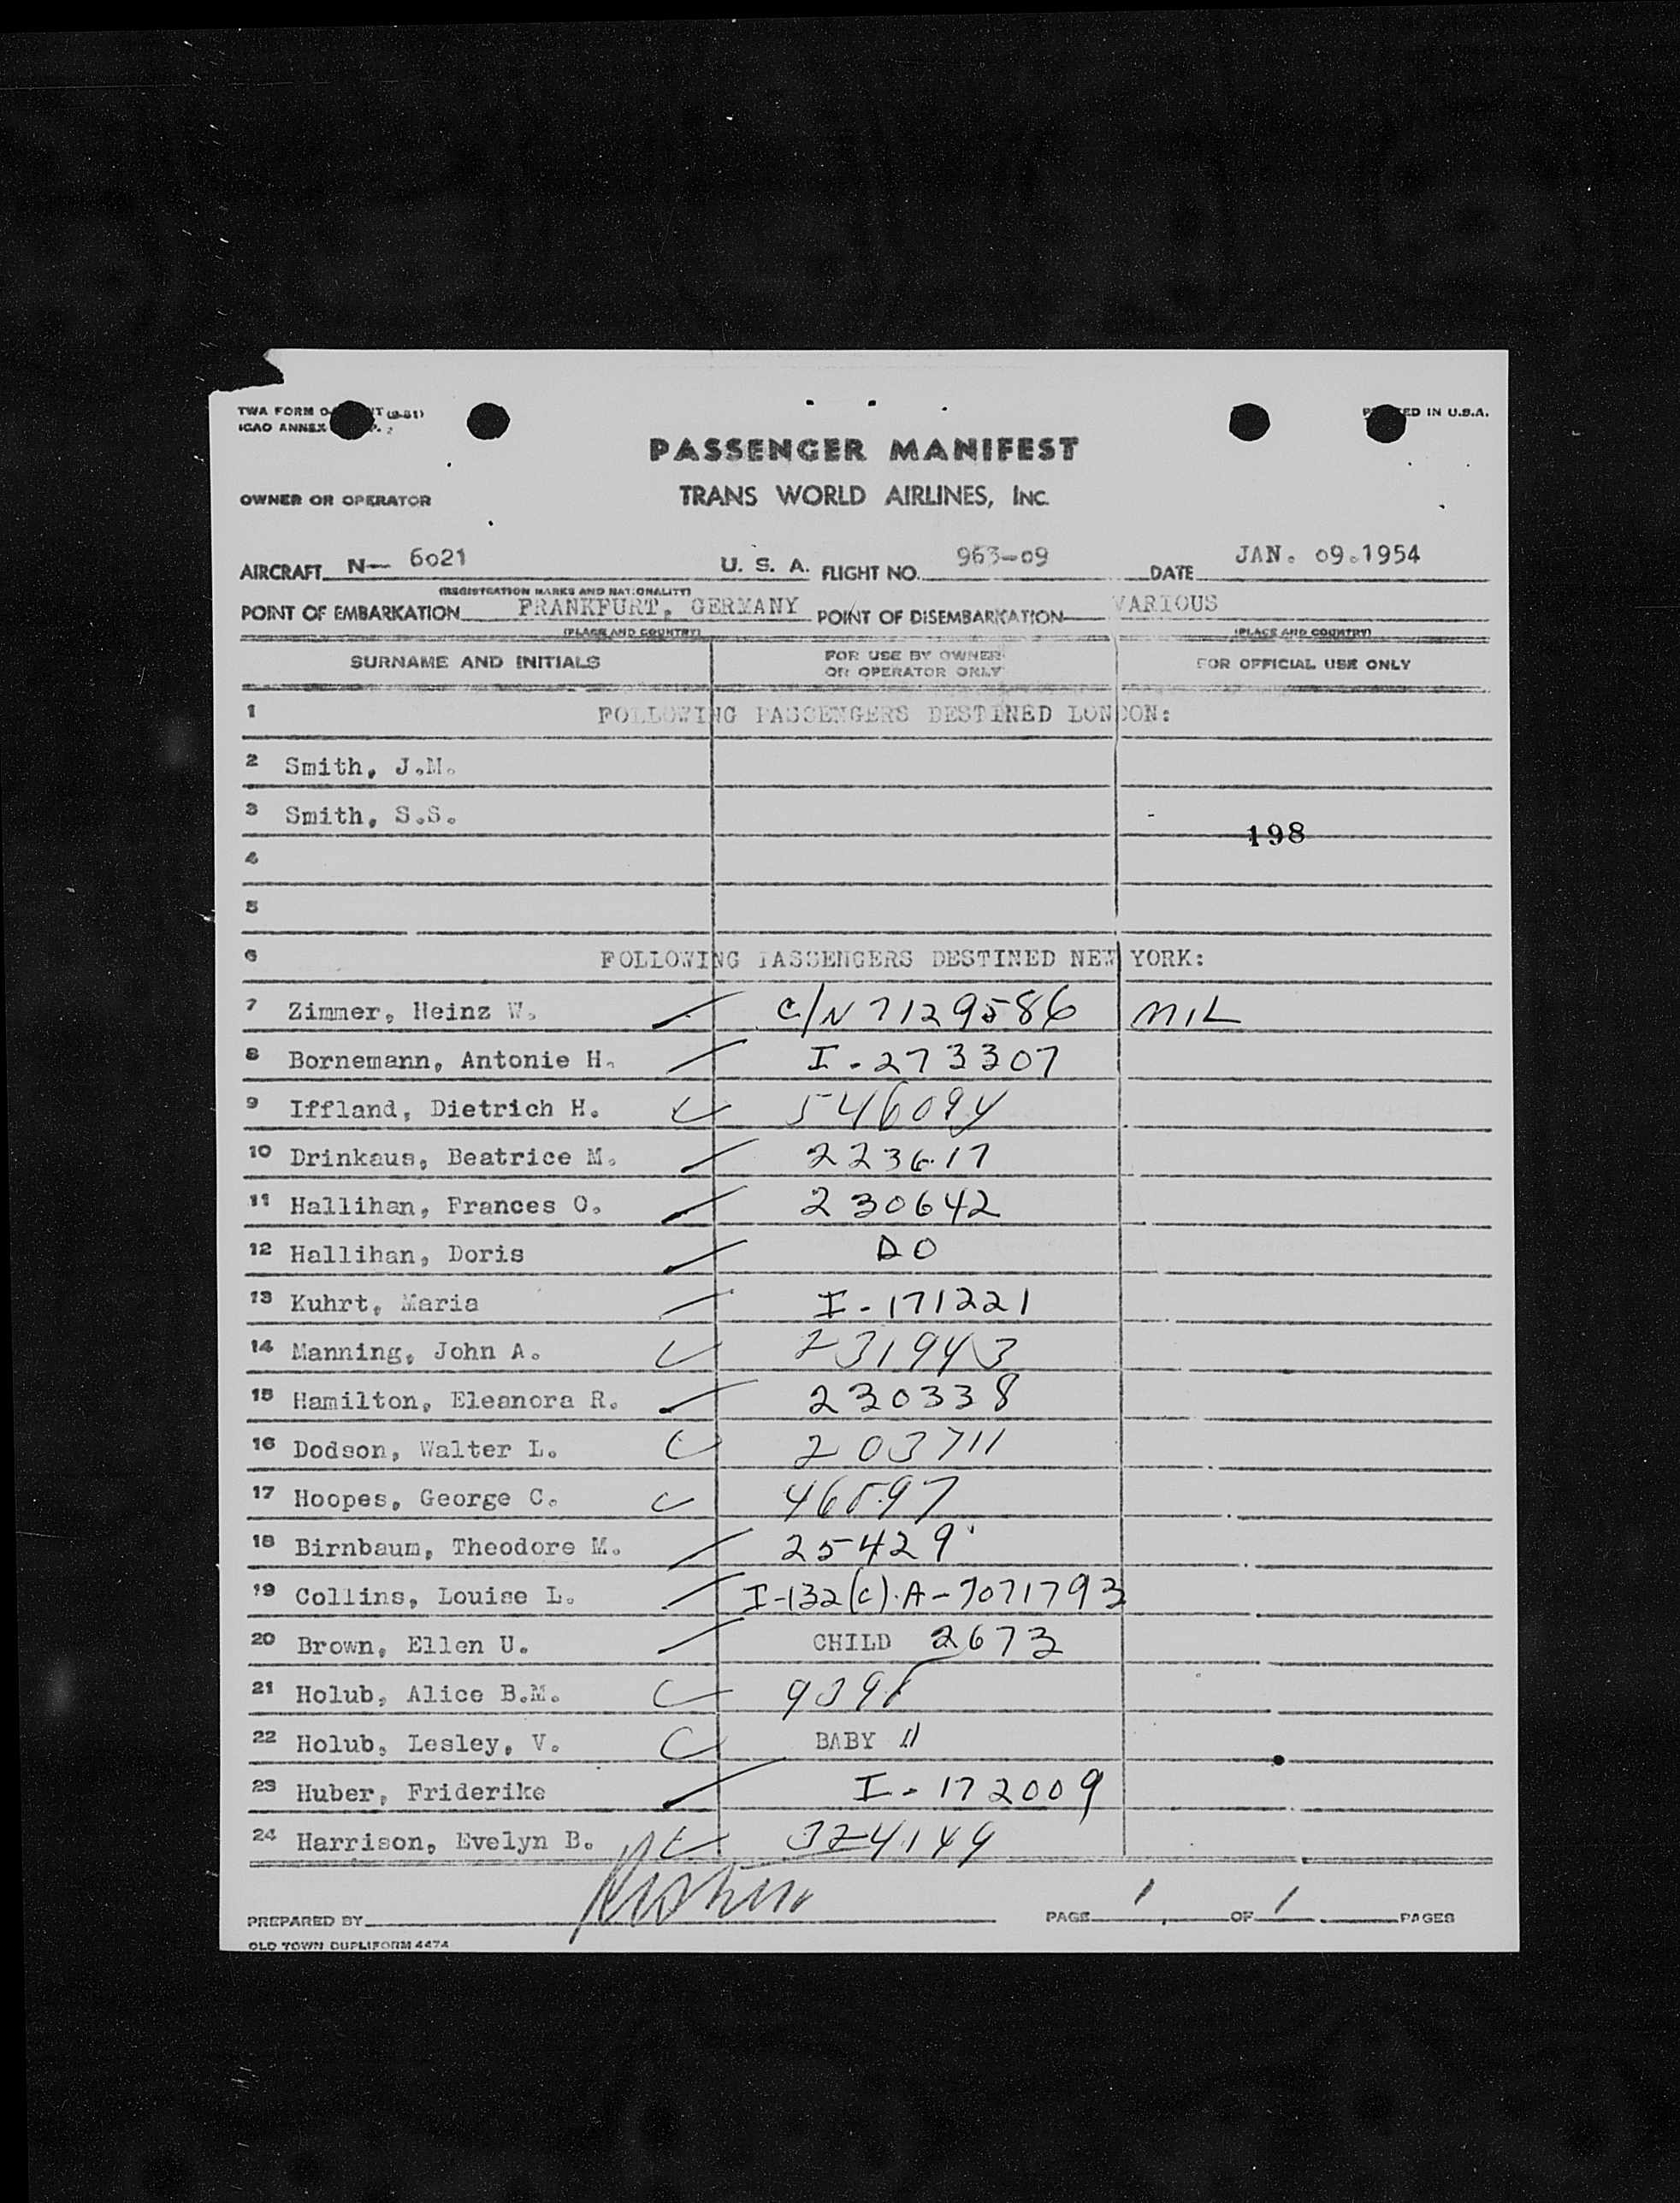 TWA FORM (8-51)
ICAO ANNEX
PRINTED IN U.S.A.
PASSENGER MANIFEST
OWNER OR OPERATOR TRANS WORLD AIRLINES, INC.
AIRCRAFT N— 6021 U. S. A. FLIGHT NO. 963-09 DATE JAN. 09.1954
(REGISTRATION MARKS AND NATIONALITY)
POINT OF EMBARKATION FRANKFURT, GERMANY POINT OF DISEMBARKATION VARIOUS
(PLACE AND COUNTRY) (PLACE AND COUNTRY)
SURNAME AND INITIALS FOR USE BY OWNER OR OPERATOR ONLY FOR OFFICIAL USE ONLY
1 FOLLOWING PASSENGERS DESTINED LONDON:
2 Smith, J.M.
3 Smith, S.S.
198
4
5
6 FOLLOWING PASSENGERS DESTINED NEW YORK:
7 Zimmer, Heinz W. C/N 7129586 MIL
8 Bornemann, Antonie H. I-273307
9 Iffland, Dietrich H. 546094
10 Drinkaus, Beatrice M. 223617
11 Hallihan, Frances O. 230642
12 Hallihan, Doris DO
13 Kuhrt, Maria I-171221
14 Manning, John A. 231943
15 Hamilton, Eleanora R. 230338
16 Dodson, Walter L. 203711
17 Hoopes, George C.
18 Birnbaum, Theodore M. 25429
19 Collins, Louise L. I-132(C).A-7071793
20 Brown, Ellen U. CHILD 2673
21 Holub, Alice B.M.
22 Holub, Lesley, V. BABY "
23 Huber, Friderike I-172009
24 Harrison, Evelyn B. 324149
PREPARED BY PAGE 1 OF 1 PAGES
OLD TOWN DUPLIFORM 4474